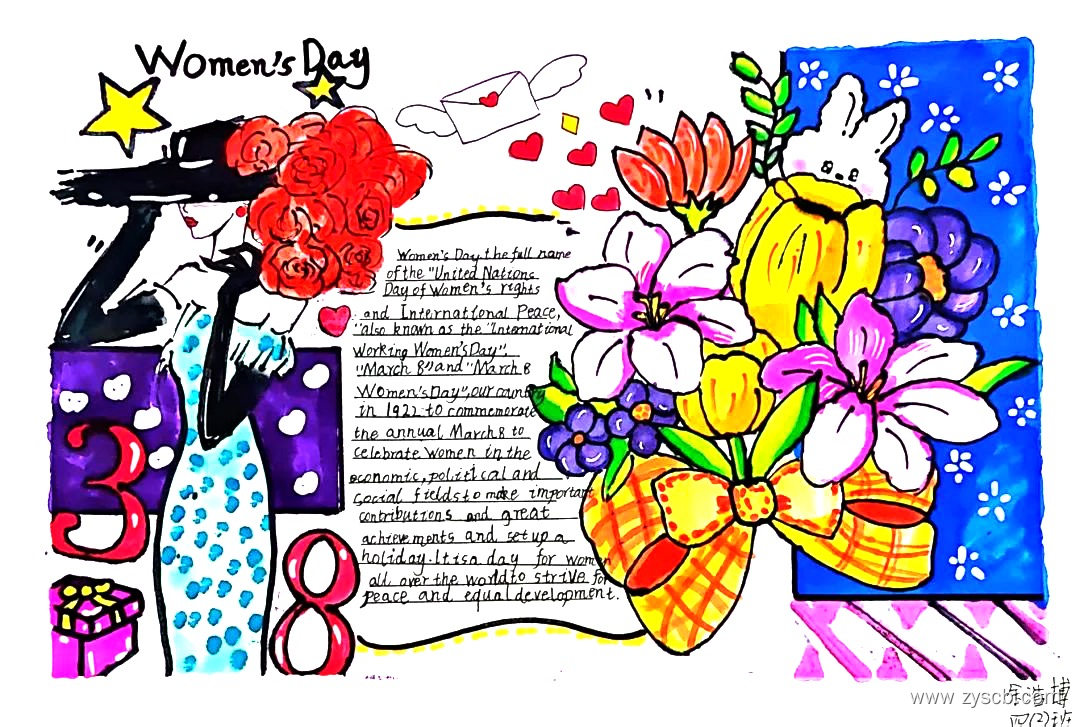 Women's Day
Women's Day the full name
of the "United Nations
Day of Women's rights
and International Peace,
"also known as the "International
Working Women's Day",
"March 8" and "March 8
Women's Day", our country
in 1922 to commemorate
the annual March 8 to
celebrate women in the
economic, political and
Social fields to make important
contributions and great
achievements and set up a
holiday. It is a day for women
all over the world to strive for
peace and equal development.
3
8
www.zyscbj.com
博
四(2)班